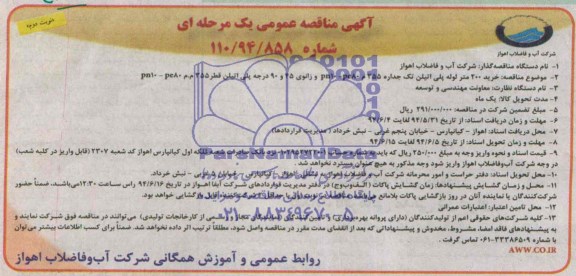 نوبت دوم
آگهی مناقصه عمومی یک مرحله ای
شماره ۱۱۰/۹۴/۸۵۸
شرکت آب و فاضلاب اهواز
۱- نام دستگاه مناقصه‌گذار: شرکت آب و فاضلاب اهواز
۲- موضوع مناقصه: خرید ۲۰۰ متر لوله پلی اتیلن تک جداره ۳۵۵ م.م pn۱۰ pe۸۰ و زانوی ۴۵ و ۹۰ درجه پلی اتیلن قطر ۳۵۵ م.م pe۸۰ - pn۱۰
۳- نام دستگاه نظارت: معاونت مهندسی و توسعه
۴- مدت تحویل کالا: یک ماه
۵- مبلغ تضمین شرکت در مناقصه: ۲۹۱/۰۰۰/۰۰۰ ریال
۶- مهلت و زمان دریافت اسناد: از تاریخ ۹۴/۵/۳۱ لغایت ۹۴/۶/۴
۷- محل دریافت اسناد: اهواز - کیانپارس - خیابان پنجم غربی - نبش خرداد (مدیریت قراردادها)
۸- مهلت و زمان تحویل اسناد: از تاریخ ۹۴/۶/۵ لغایت ۹۴/۶/۱۵
۹- قیمت اسناد و نحوه واریز وجه به مبلغ ۲۵۰/۰۰۰ ریال که بایستی به شماره حساب نزد بانک صادرات شعبه فلکه اول کیانپارس اهواز کد شعبه ۲۳۰۷ (قابل واریز در کلیه شعب)
در وجه شرکت آب‌وفاضلاب اهواز واریز شود وجه مذکور به هیچ عنوان مسترد نخواهد شد.
۱۰- محل تحویل اسناد: دفتر حراست و امور محرمانه شرکت آب و فاضلاب اهواز به نشانی اهواز - کیانپارس - خیابان پنجم غربی - نبش خرداد.
۱۱- محل و زمان گشایش پیشنهادها: زمان گشایش پاکات (الف‌وب‌وج) در دفتر مدیریت قراردادهای شرکت آبفا اهواز در تاریخ ۹۴/۶/۱۶ راس ساعت ۱۲:۳۰ می‌باشد، ضمناً حضور
شرکت‌کنندگان یا نماینده آنان در روز بازگشایی پاکات بلامانع
۱۲- محل تامین اعتبار: اعتبارات عمرانی
۱۳- کلیه شرکت‌های حقوقی اعم از تولیدکنندگان (دارای پروانه بهره‌برداری) از کارخانجات تولیدی) می‌توانند در مناقصه فوق شرکت نمایند و
به پیشنهادهای فاقد امضا، مشروط، مخدوش و پیشنهاداتی که بعد از انقضای مدت مقرر در مناقصه واصل شود، مطلقاً ترتیب اثر داده نخواهد شد. ضمناً برای کسب اطلاعات بیشتر می‌توان
با شماره ۳۳۳۸۶۵۰۹-۰۶۱ تماس گرفت.
AWW.CO.IR
روابط عمومی و آموزش همگانی شرکت آب‌وفاضلاب اهواز
ParsNamadData
۰۲۱-۸۸۳۴۹۶۷۰-۵